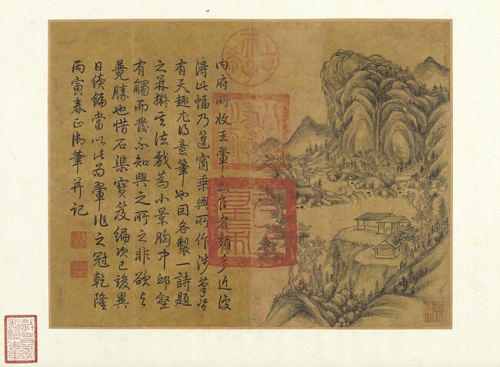 內府所收王翬畫佳者頗多近復
得此幅乃篷窗乘興所作涉筆皆
有天趣尤得意筆也因各製一詩題
之并擬其法戲為小景胸中邱壑
有觸而發不知興之所之非欲與
曩勝也惜石渠寶笈編次已竣異
日續編當以此為翬作之冠乾隆
丙寅春正御筆并記